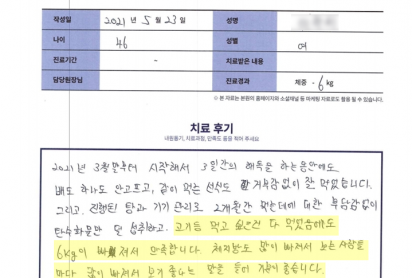 작성일 2021년 5월 23일 성명
나이 46 성별 여
진료기간 - 진료받은 내용
담당원장님 진료경과 체중 -6kg
※ 본 자료는 본원의 홈페이지와 소셜채널 등 마케팅 자료로도 활용 될 수 있습니다.
치료 후기
내원동기, 치료과정, 만족도 등을 적어 주세요
2021년 3월말부터 시작해서 3일간의 해독을 하는동안에도
배도 하나도 안고프고, 같이 먹은 선식도 거부감없이 잘 먹었습니다.
그리고, 진행된 탕과 기기 관리로 2개월간 먹는데에 대한 부담감없이
탄수화물만 덜 섭취하고. 고기등 먹고 싶은건 다 먹었음에도
6kg이 빠져서 만족합니다. 체지방도 많이 빠져서 보는 사람들
마다 많이 빠져서 보기 좋다는 말을 들어 기분이 좋습니다.